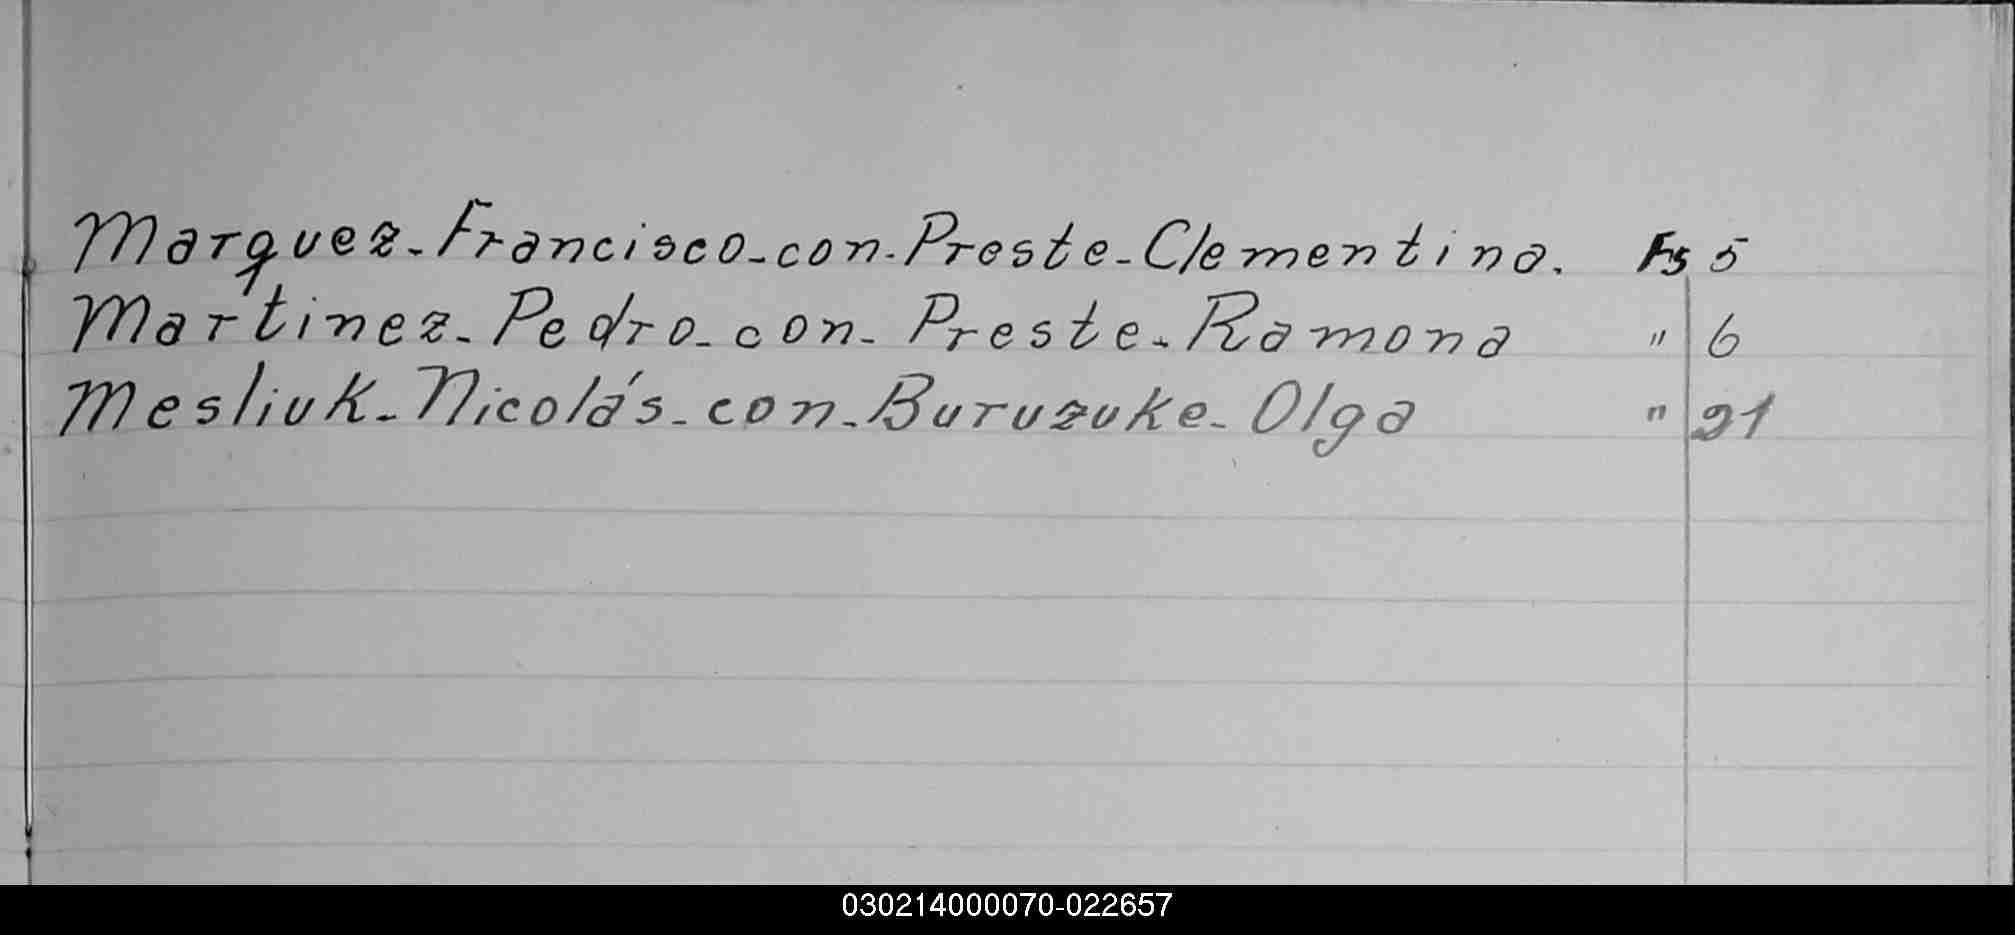 Marquez-Francisco-con-Preste-Clementina. Fs 5
Martinez-Pedro-con-Preste-Ramona " 6
Mesliuk-Nicolás-con-Buruzuke-Olga " 21
030214000070-022657